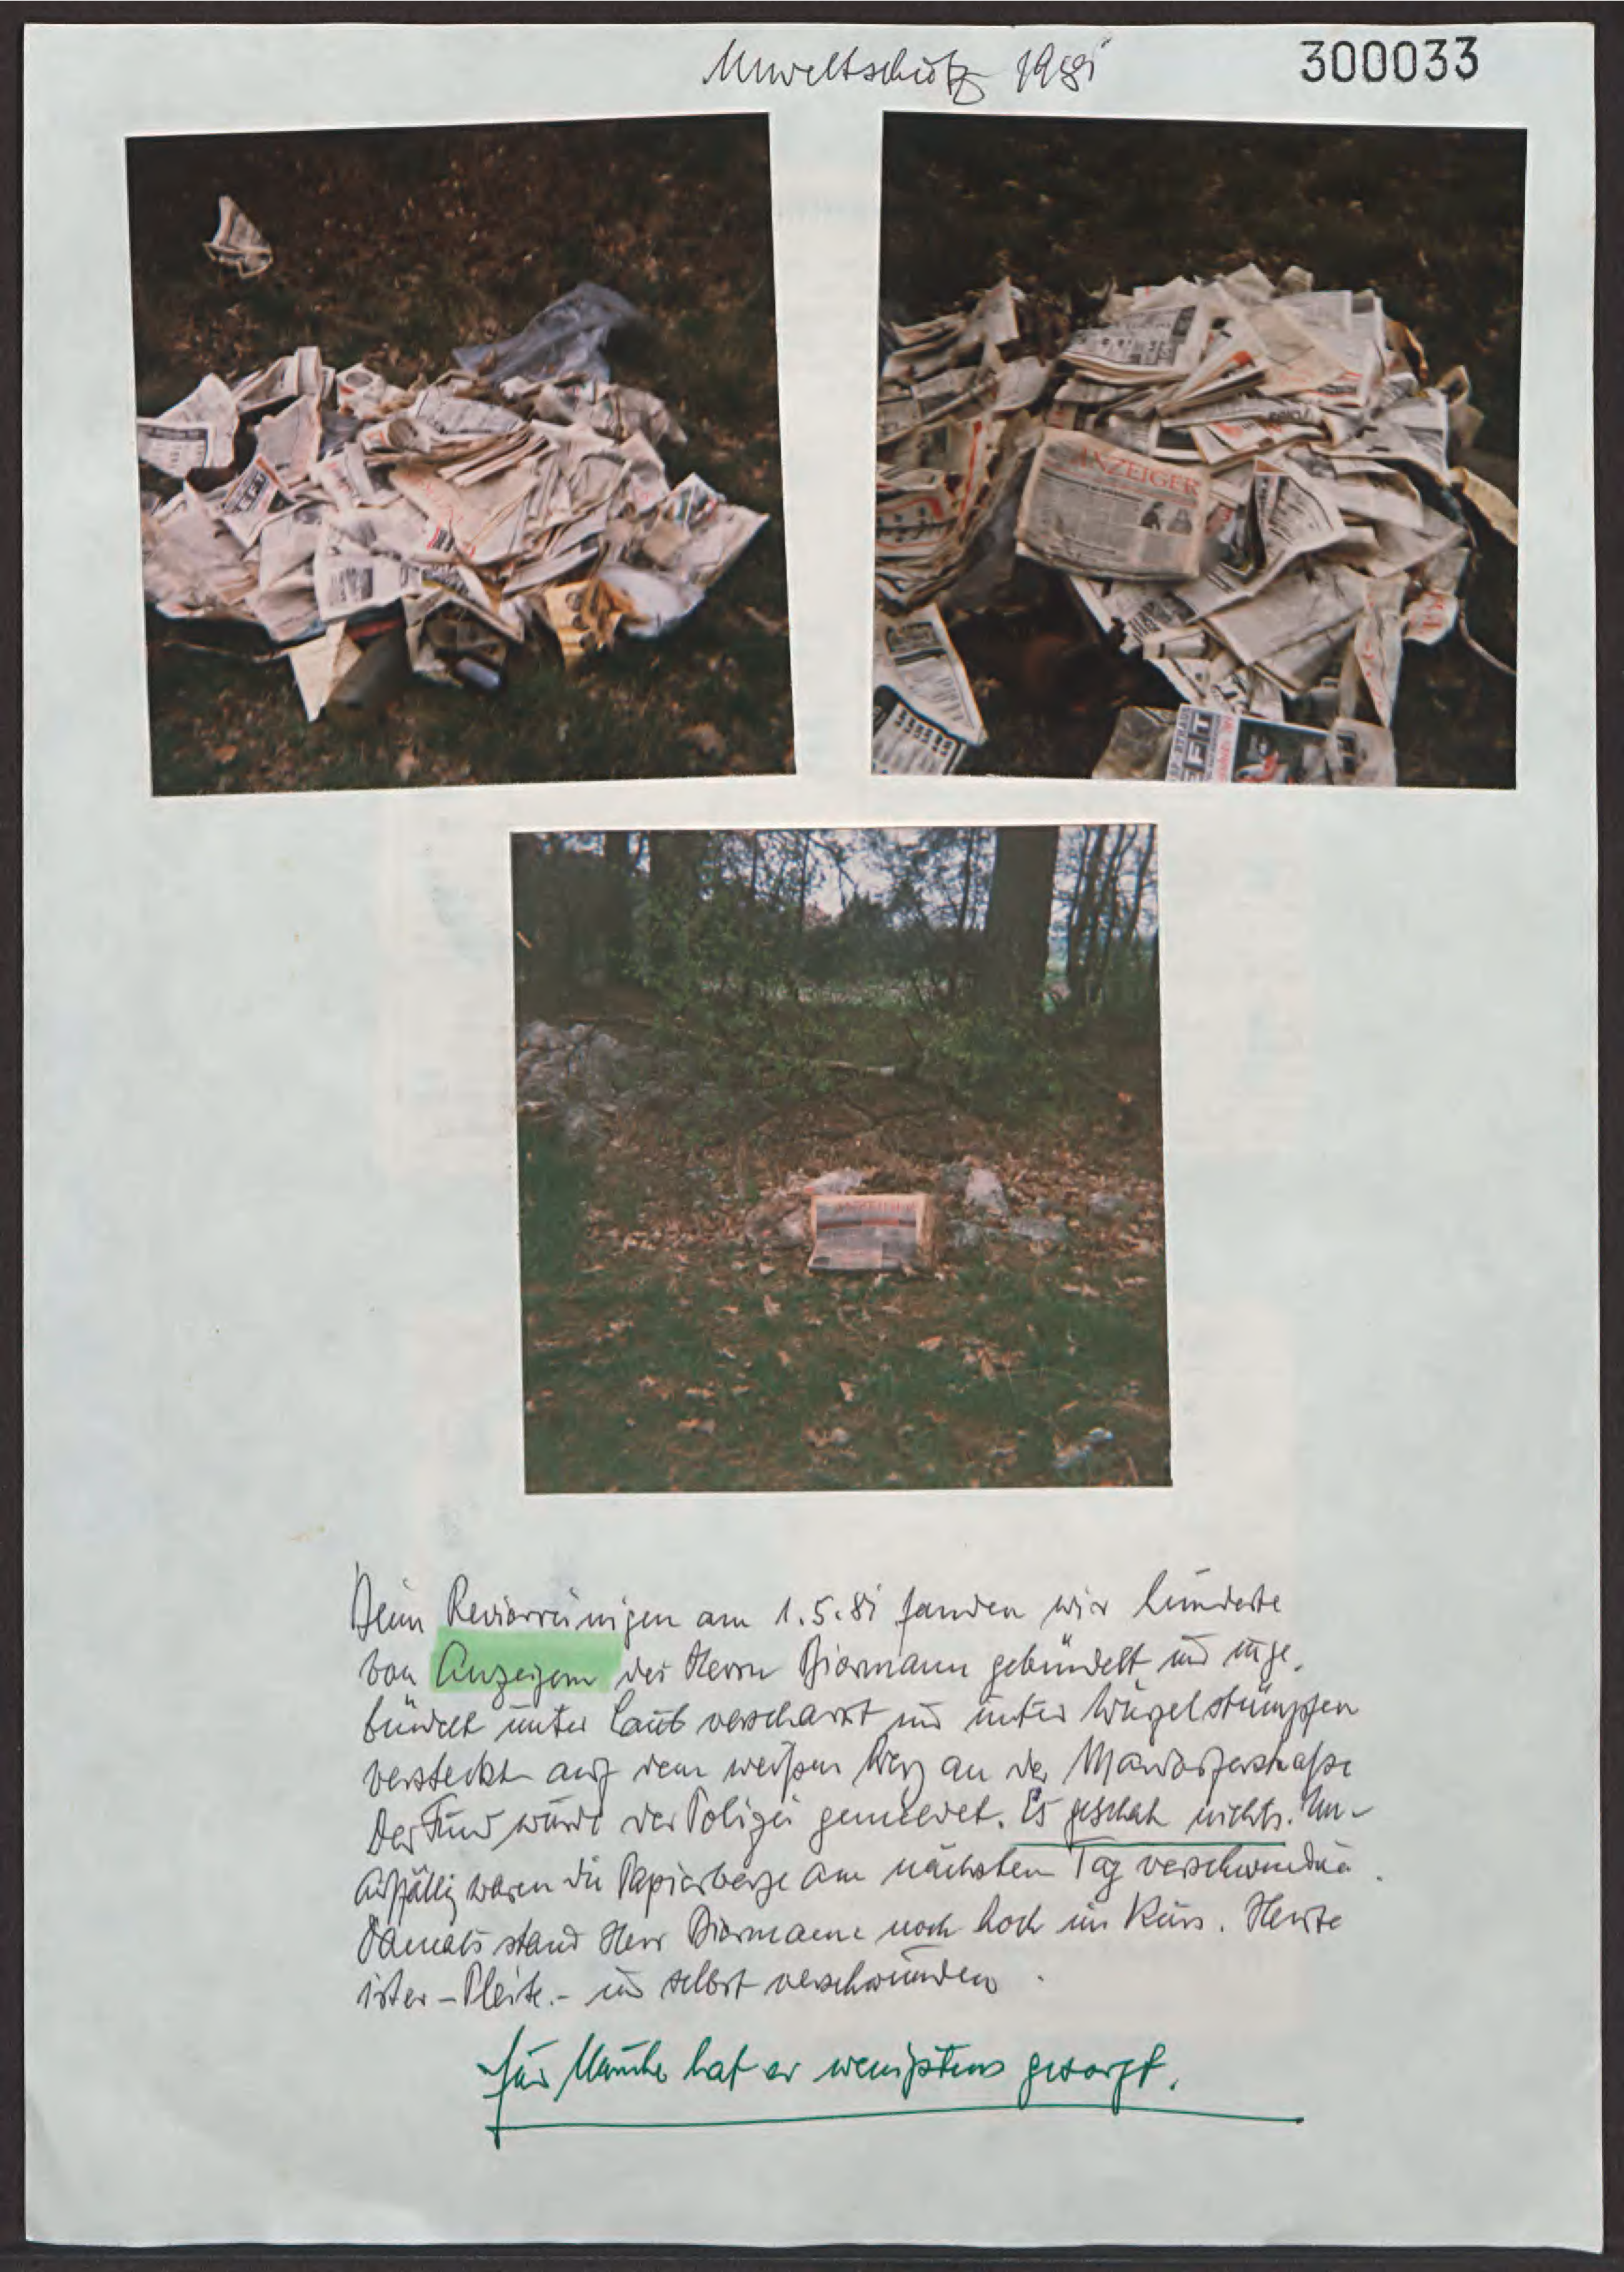 Umweltschutz 1981
300033
ANZEIGER
Beim Revierreinigen am 1.5.81 fanden wir hunderte
von Anzeigern des Herrn Biermann gebündelt und unge-
bündelt unter Laub verscharrt und unter Wurzelstümpfen
versteckt auf dem weißen Weg an der
Der Fund wurde der Polizei gemeldet. Es geschah nichts. Un-
auffällig waren die Papierberge am nächsten Tag verschwunden.
Damals stand Herr Biermann noch hoch im Kurs. Heute
ist er – Pleite. – und selbst verschwunden.
für hat er wenigstens gesorgt.